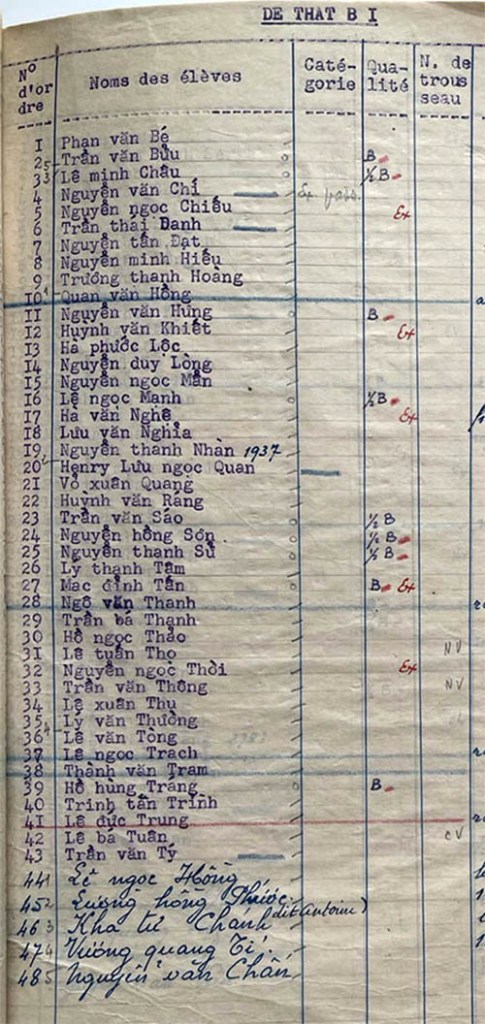 DE THAT B I
N° d'or dre Noms des élèves Caté- gorie Qua- lité N. de trous seau
I Phạn văn Bé
2 Trần văn Bưu B
3 Lê minh Châu ½ B
4 Nguyễn văn Chí
5 Nguyễn ngọc Chiếu Ex
6 Trần thái Danh
7 Nguyễn tấn Đạt
8 Nguyễn minh Hiếu
9 Trương thanh Hoàng
IO Quan văn Hồng
II Nguyễn văn Hưng B
I2 Huỳnh văn Khiết Ex
I3 Hà phước Lộc
I4 Nguyễn duy Lòng
I5 Nguyễn ngọc Mẫn
I6 Lê ngọc Mạnh ½ B
I7 Hà văn Nghệ Ex
I8 Lưu văn Nghĩa
I9 Nguyễn thanh Nhàn 1937
20 Henry Lưu ngọc Quan
2I Võ xuân Quang
22 Huỳnh văn Ráng
23 Trần văn Sáo ½ B
24 Nguyễn hồng Sơn ½ B
25 Nguyễn thanh Sử ½ B
26 Lý thạnh Tâm
27 Mạc đình Tấn B Ex
28 Ngô văn Thanh
29 Trần bá Thạnh
30 Hồ ngọc Thảo
3I Lê tuấn Thọ NV
32 Nguyễn ngọc Thời Ex
33 Trần văn Thông NV
34 Lê xuân Thu
35 Lý văn Thường
36 Lê văn Tòng
37 Lê ngọc Trach
38 Thành văn Tram
39 Hồ hùng Tráng B
40 Trinh tấn Trinh
4I Lê đức Trung
42 Lê bá Tuân CV
43 Trần văn Tý
44 Lê ngọc Hồng
45 Lương hồng Phước (dit Antoine)
46 Kha tư Chánh
47 Vương quang Ti
48 Nguyễn văn Chấn